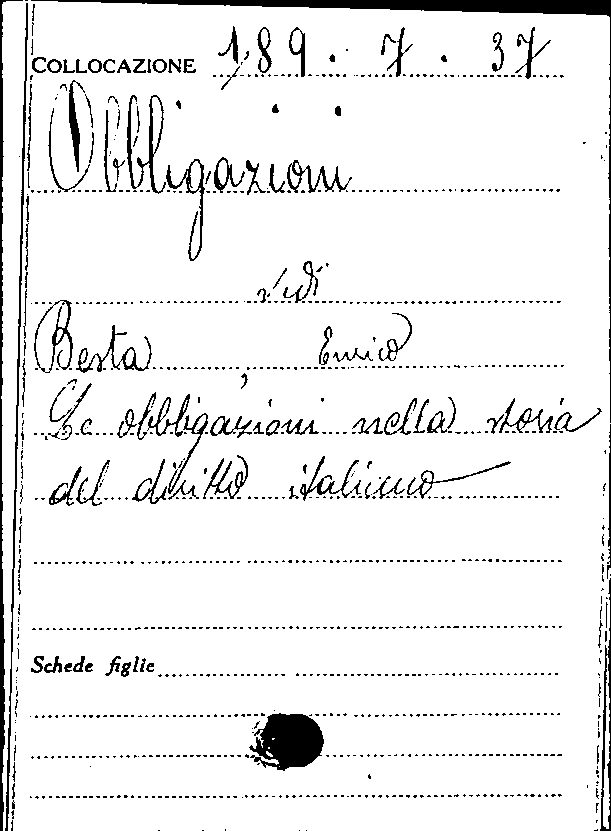 COLLOCAZIONE 189. 7. 37
Obbligazioni
vedi
Besta, Enrico
Le obbligazioni nella storia
del diritto italiano
Schede figlie